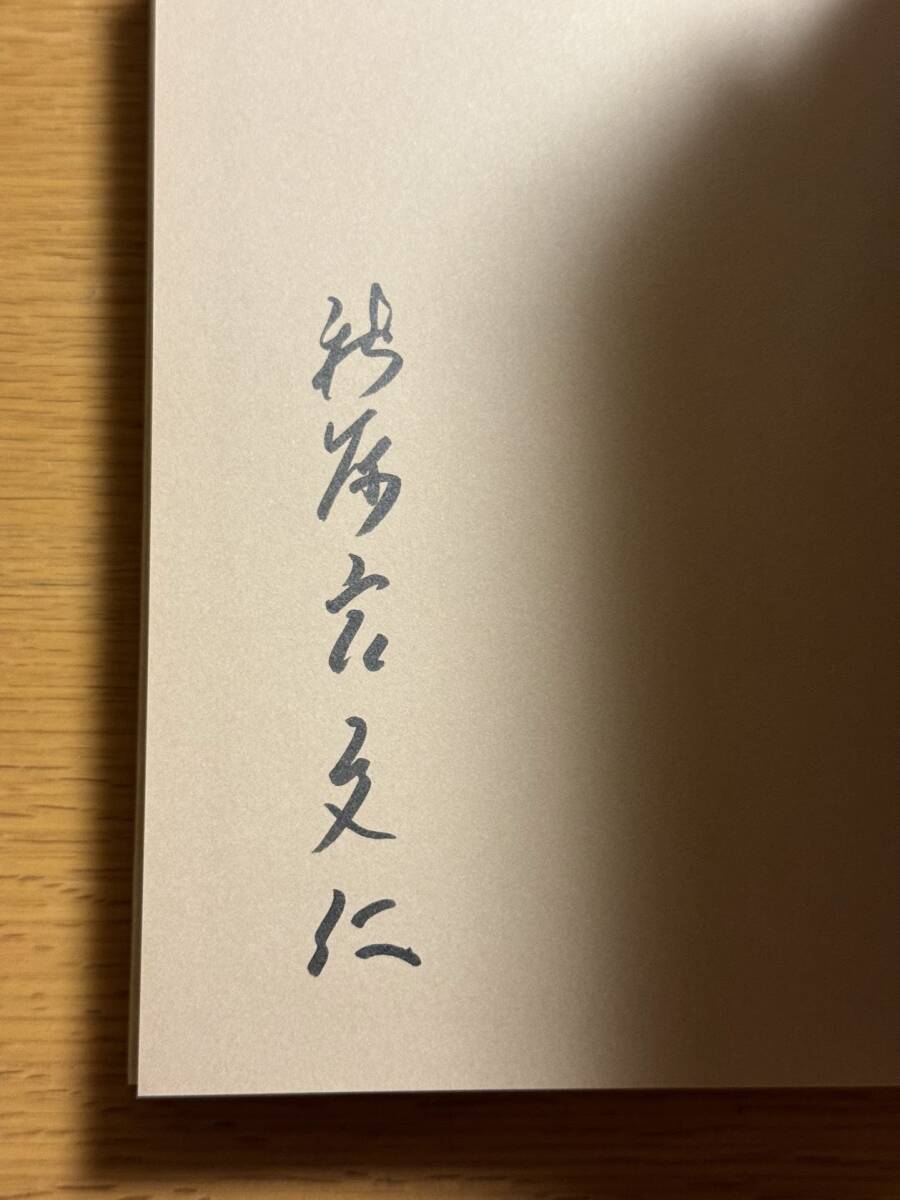 秋篠宮文仁